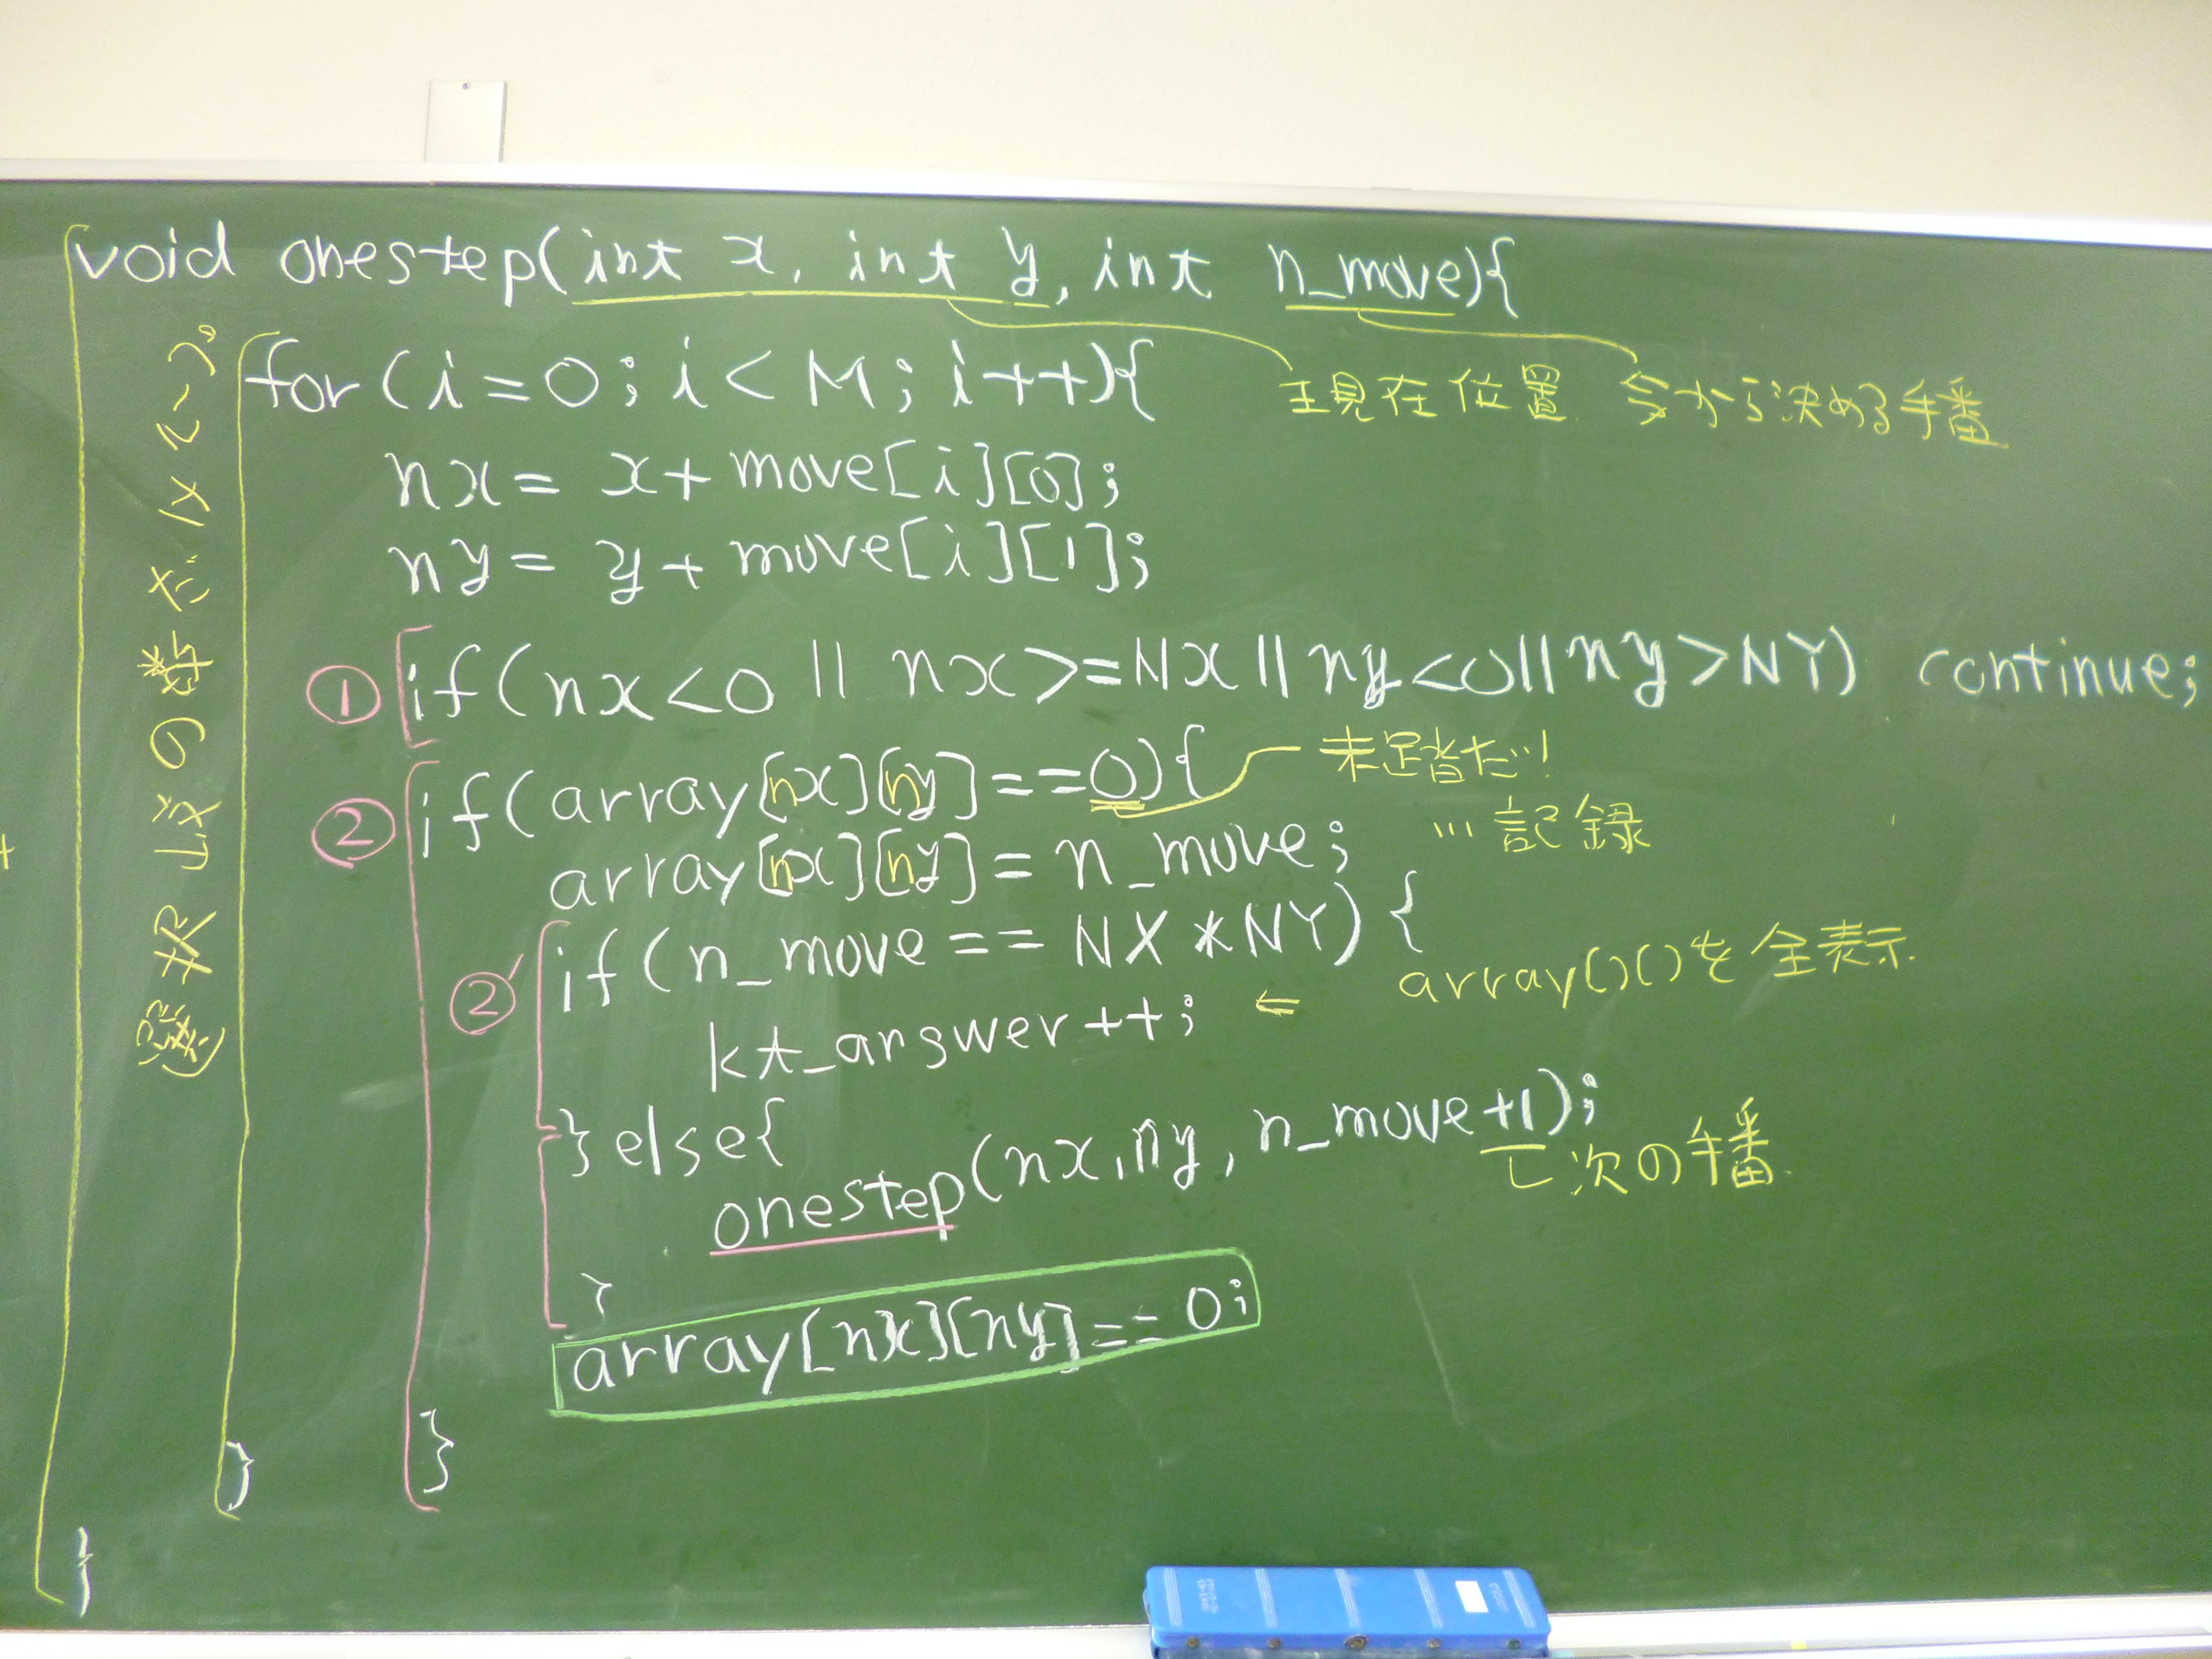 void onestep(int x, int y, int n_move){
現在位置 今から決める手番
for(i=0; i<M; i++){
nx= x+move[i][0];
ny= y+move[i][1];
① if(nx<0 || nx>=NX || ny<0 || ny>NY) continue;
② if(array[nx][ny]==0){
未踏だ!
array[nx][ny]=n_move;
…記録
②' if(n_move == NX*NY){
kt_answer++; ⇐ array()()を全表示
}else{
onestep(nx, ny, n_move+1);
次の手番
}
array[nx][ny]==0;
}
}
}
選択
の数だけ